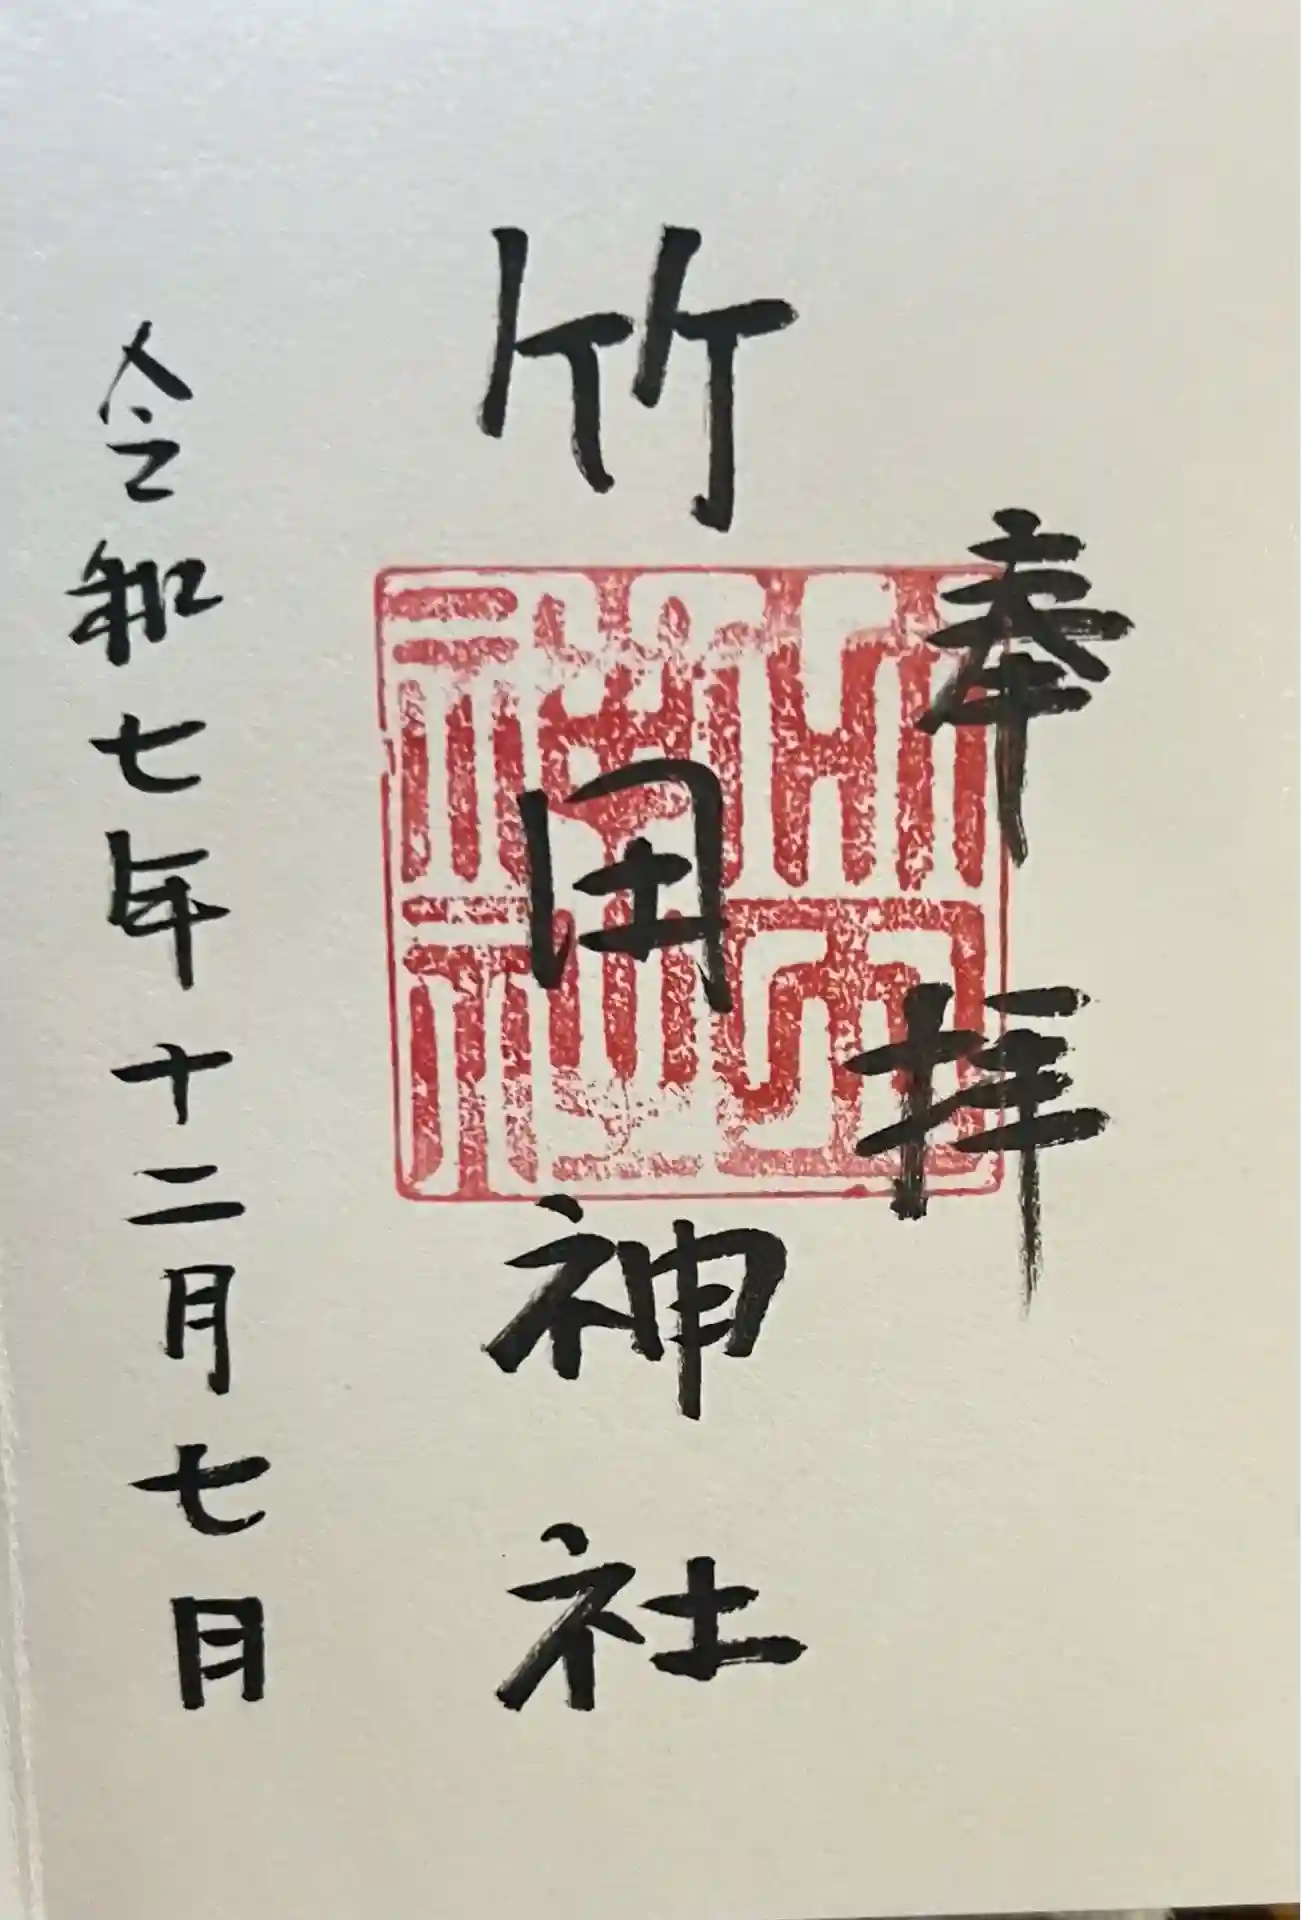 奉拝
竹田神社
竹田神社
令和七年十二月七日